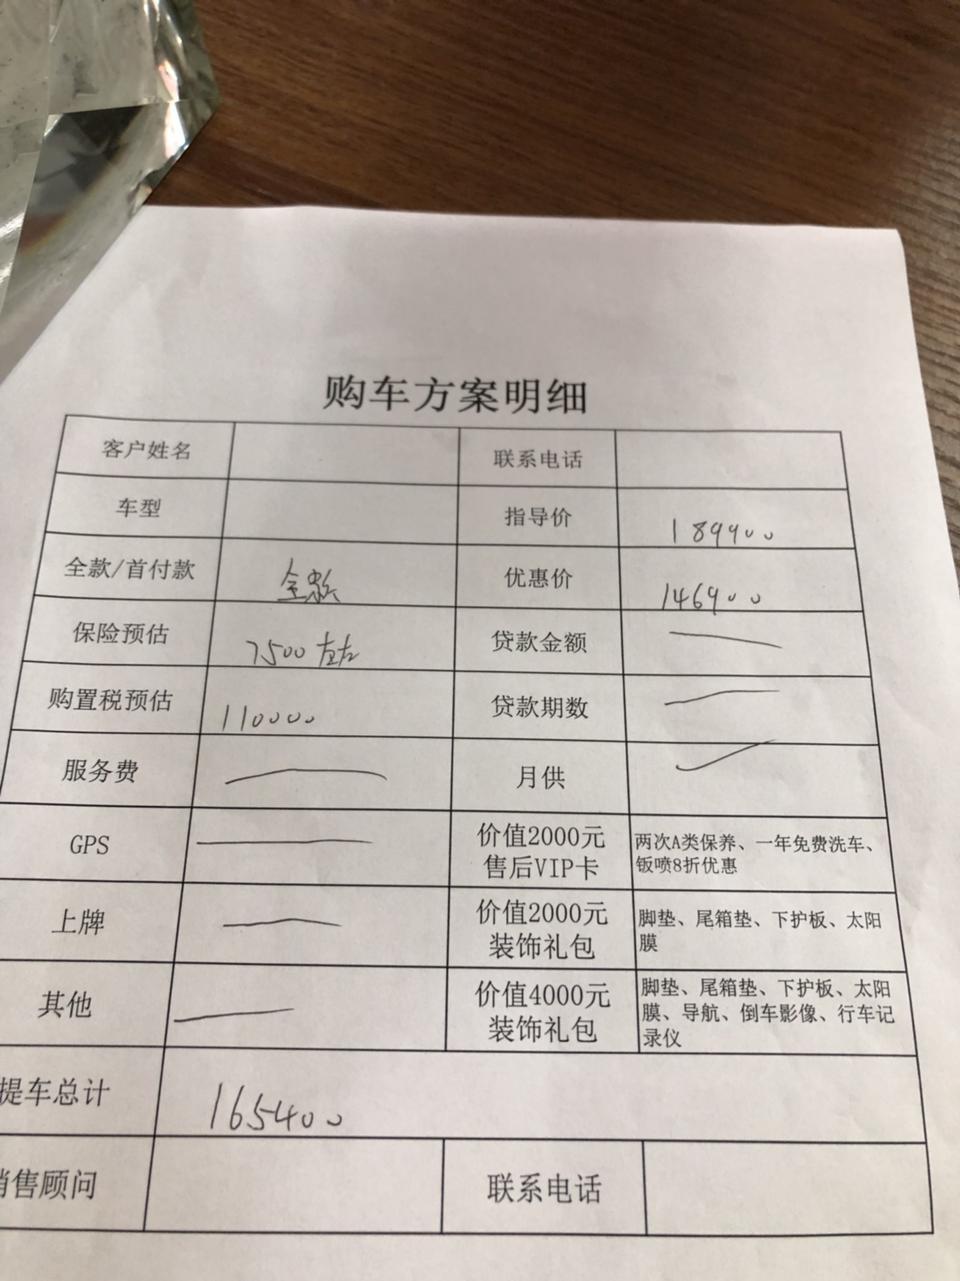 购车方案明细
客户姓名 联系电话
车型 指导价 189900
全款/首付款 全款 优惠价 146900
保险预估 7500左右 贷款金额
购置税预估 110000 贷款期数
服务费 月供
GPS 价值2000元 两次A类保养、一年免费洗车、
售后VIP卡 钣喷8折优惠
上牌 价值2000元 脚垫、尾箱垫、下护板、太阳
装饰礼包 膜
其他 价值4000元 脚垫、尾箱垫、下护板、太阳
装饰礼包 膜、导航、倒车影像、行车记
录仪
提车总计 165400
销售顾问 联系电话